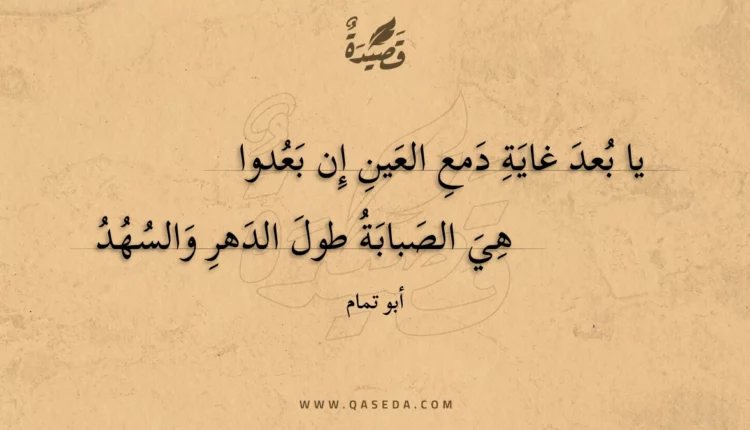 قَصِيْدَةٌ
يا بُعدَ غايَةِ دَمعِ العَينِ إِن بَعُدوا
هِيَ الصَبابَةُ طولَ الدَهرِ وَالسُهُدُ
أبو تمام
WWW.QASEDA.COM